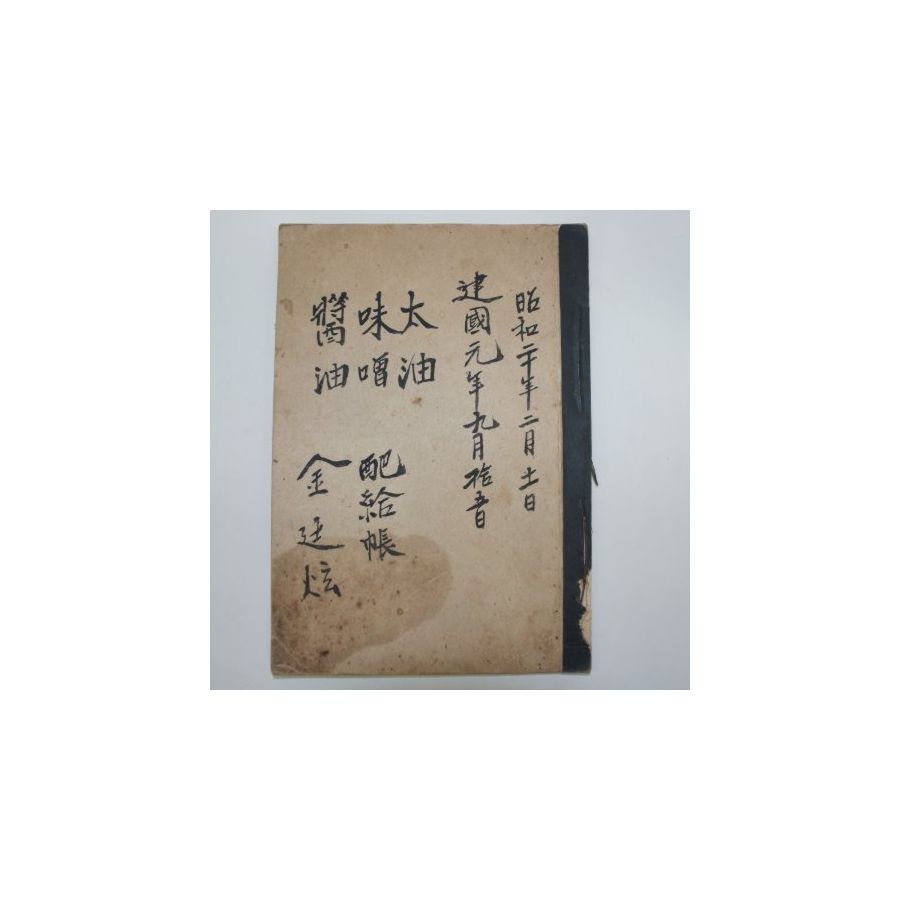 昭和二十年二月十一日
建國元年九月拾五日
太油
味噌 配給帳
醬油 金廷炫